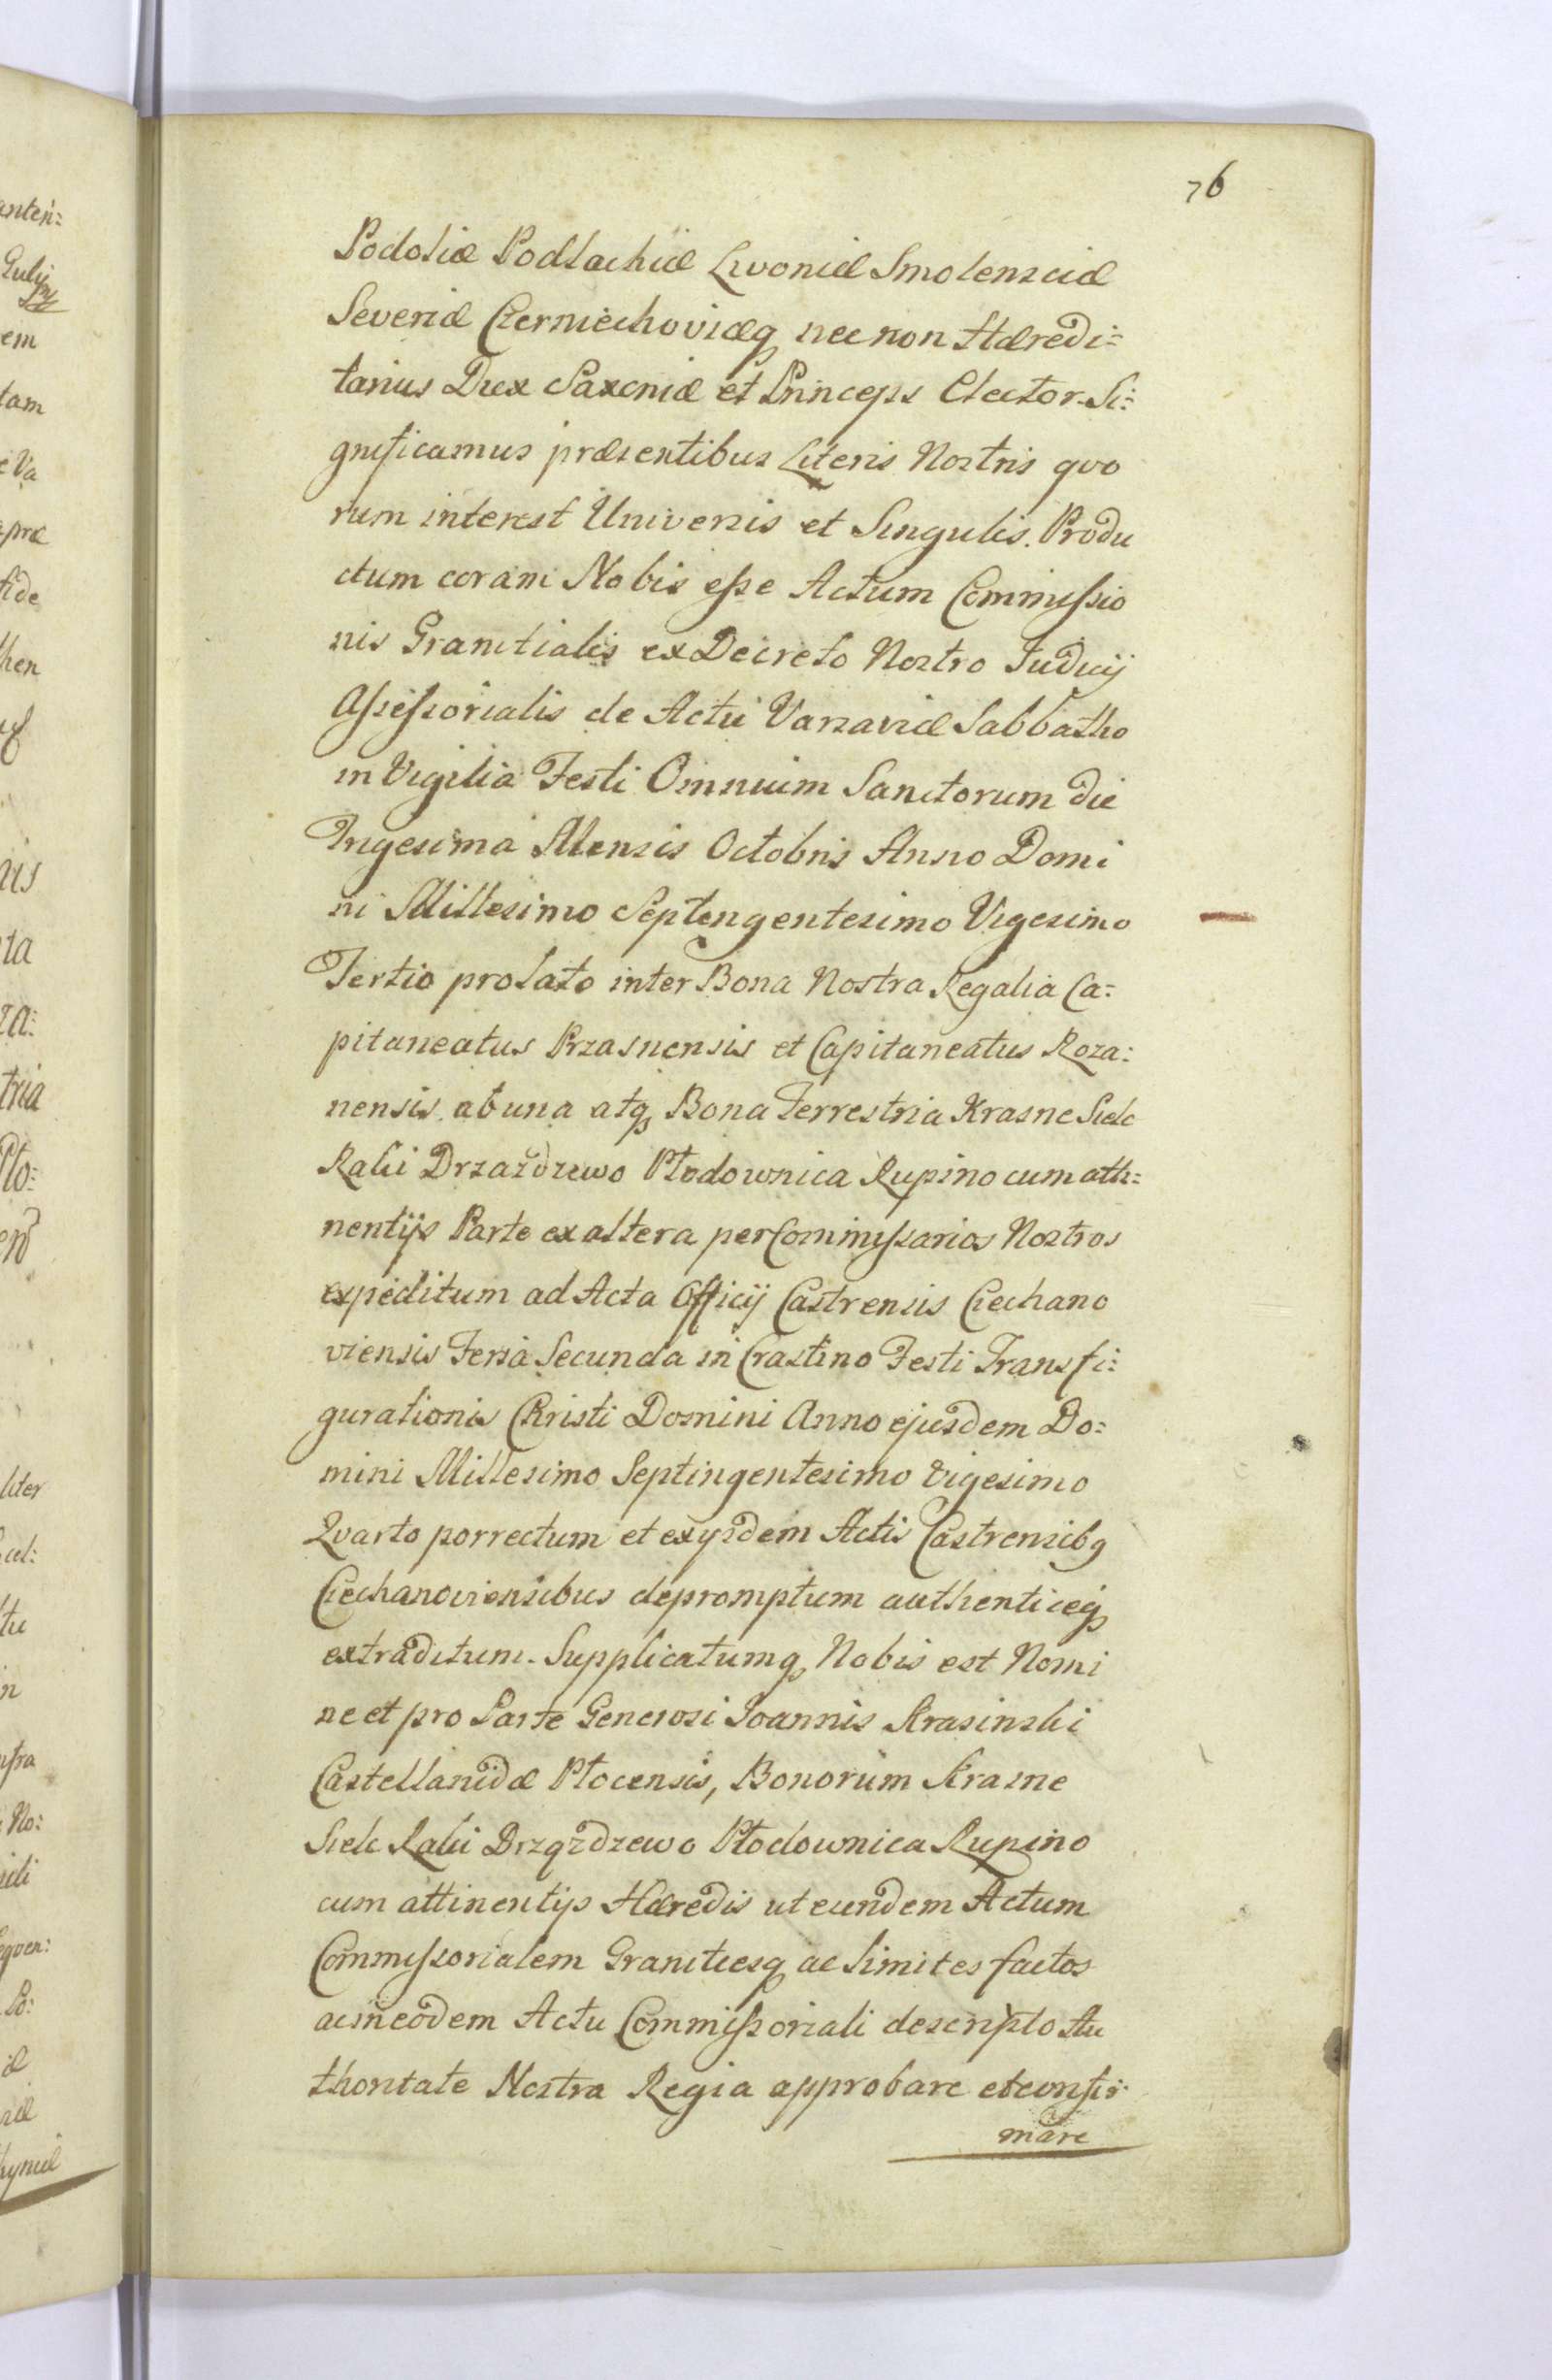 76
Podoliæ Podlachiæ Livoniæ Smolensciæ
Severiæ Czerniechoviæq nec non Hæredi=
tarius Dux Saxoniæ et Princeps Elector. Si=
gnificamus præsentibus Literis Nostris quo
rum interest Universis et Singulis. Produ
ctum coram Nobis esse Actum Commissio
nis Granitialis ex Decreto Nostro Judicij
Assessorialis de Actu Varsaviæ Sabbatho
in Vigilia Festi Omnium Sanctorum die
Trigesima Mensis Octobris Anno Domi
ni Millesimo Septengentesimo Vigesimo
Tertio prolato inter Bona Nostra Regalia Ca=
pitaneatus Przasnensis et Capitaneatus Roza=
nensis ab una atq Bona Terrestria Krasne Sielc
Raki Drzażdzewo Płodownica Rupino cum atti=
nentijs Parte ex altera per Commissarios Nostros
expeditum ad Acta Officij Castrensis Ciechano
viensis Feria Secunda in Crastino Festi Transfi=
gurationis Christi Domini Anno ejusdem Do=
mini Millesimo Septingentesimo Vigesimo
Quarto porrectum et ex ijsdem Actis Castrensibq
Ciechanoviensibus depromptum authenticeq
extraditum. Supplicatumq Nobis est Nomi
ne et pro Parte Generosi Joannis Krasinski
Castellanidæ Płocensis, Bonorum Krasne
Sielc Raki Drzążdzewo Płodownica Rupino
cum attinentijs Hæredis ut eundem Actum
Commissorialem Granitiesq ac limites factos
ac in eodem Actu Commissoriali descripto Au
thoritate Nostra Regia approbare et confir=
mare